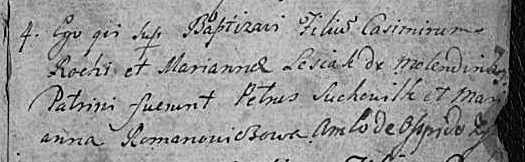 4. Ego qui sup. Baptizavi Filiũ Casimirum
Rochi et Mariannæ Lesiak de Molendin
Patrini fuerunt Petrus Suchowilk et Mari
anna Romanowiczowa Ambo de Oppido